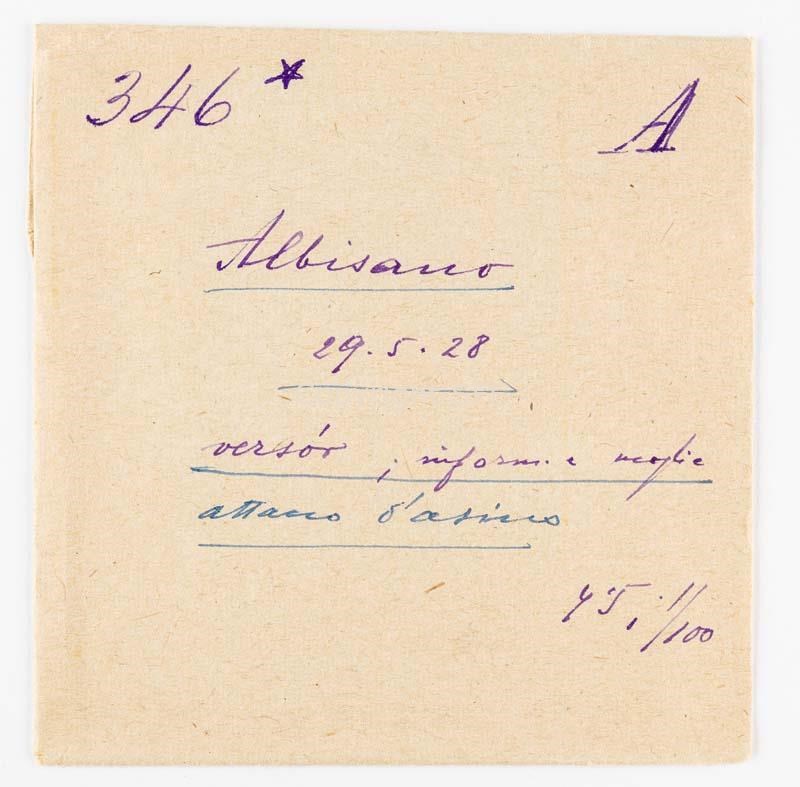 346 *
A
Albisano
29.5.28
versór ; inform. e moglie
attacco d'asino
4.5, 1/100